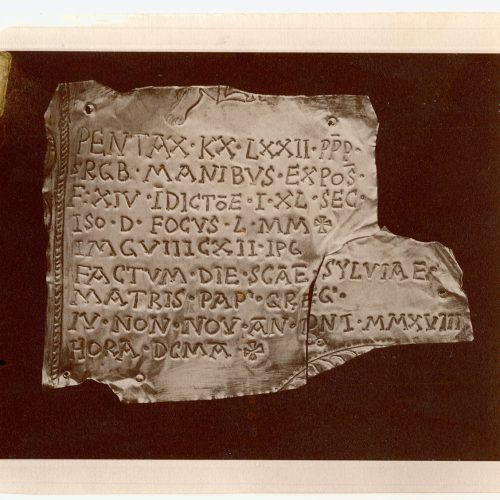 PENTAX · KX · LXXII · P̄P̄P̄
RGB · MANIBVS · EXPOS̄
F · XIV · ĪDICTōE · I · XL · SEC ·
ISO · D · FOCUS · L · MM ✠
IMGVIIICXII · IPG
FACTUM · DIE · SCAE · SYLVIAE
MATRIS · PAP · GREG ·
IV · NON · NOV · AN · DNI · MMXVIII
HORA · DCMA · ✠